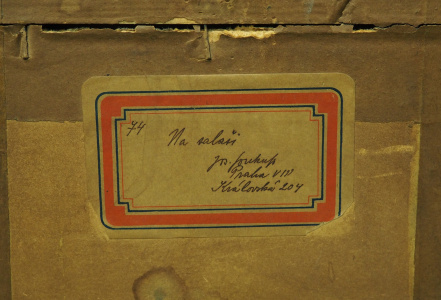 74
Na salaši
Jos. Soukup
Praha VIII
Královská 204